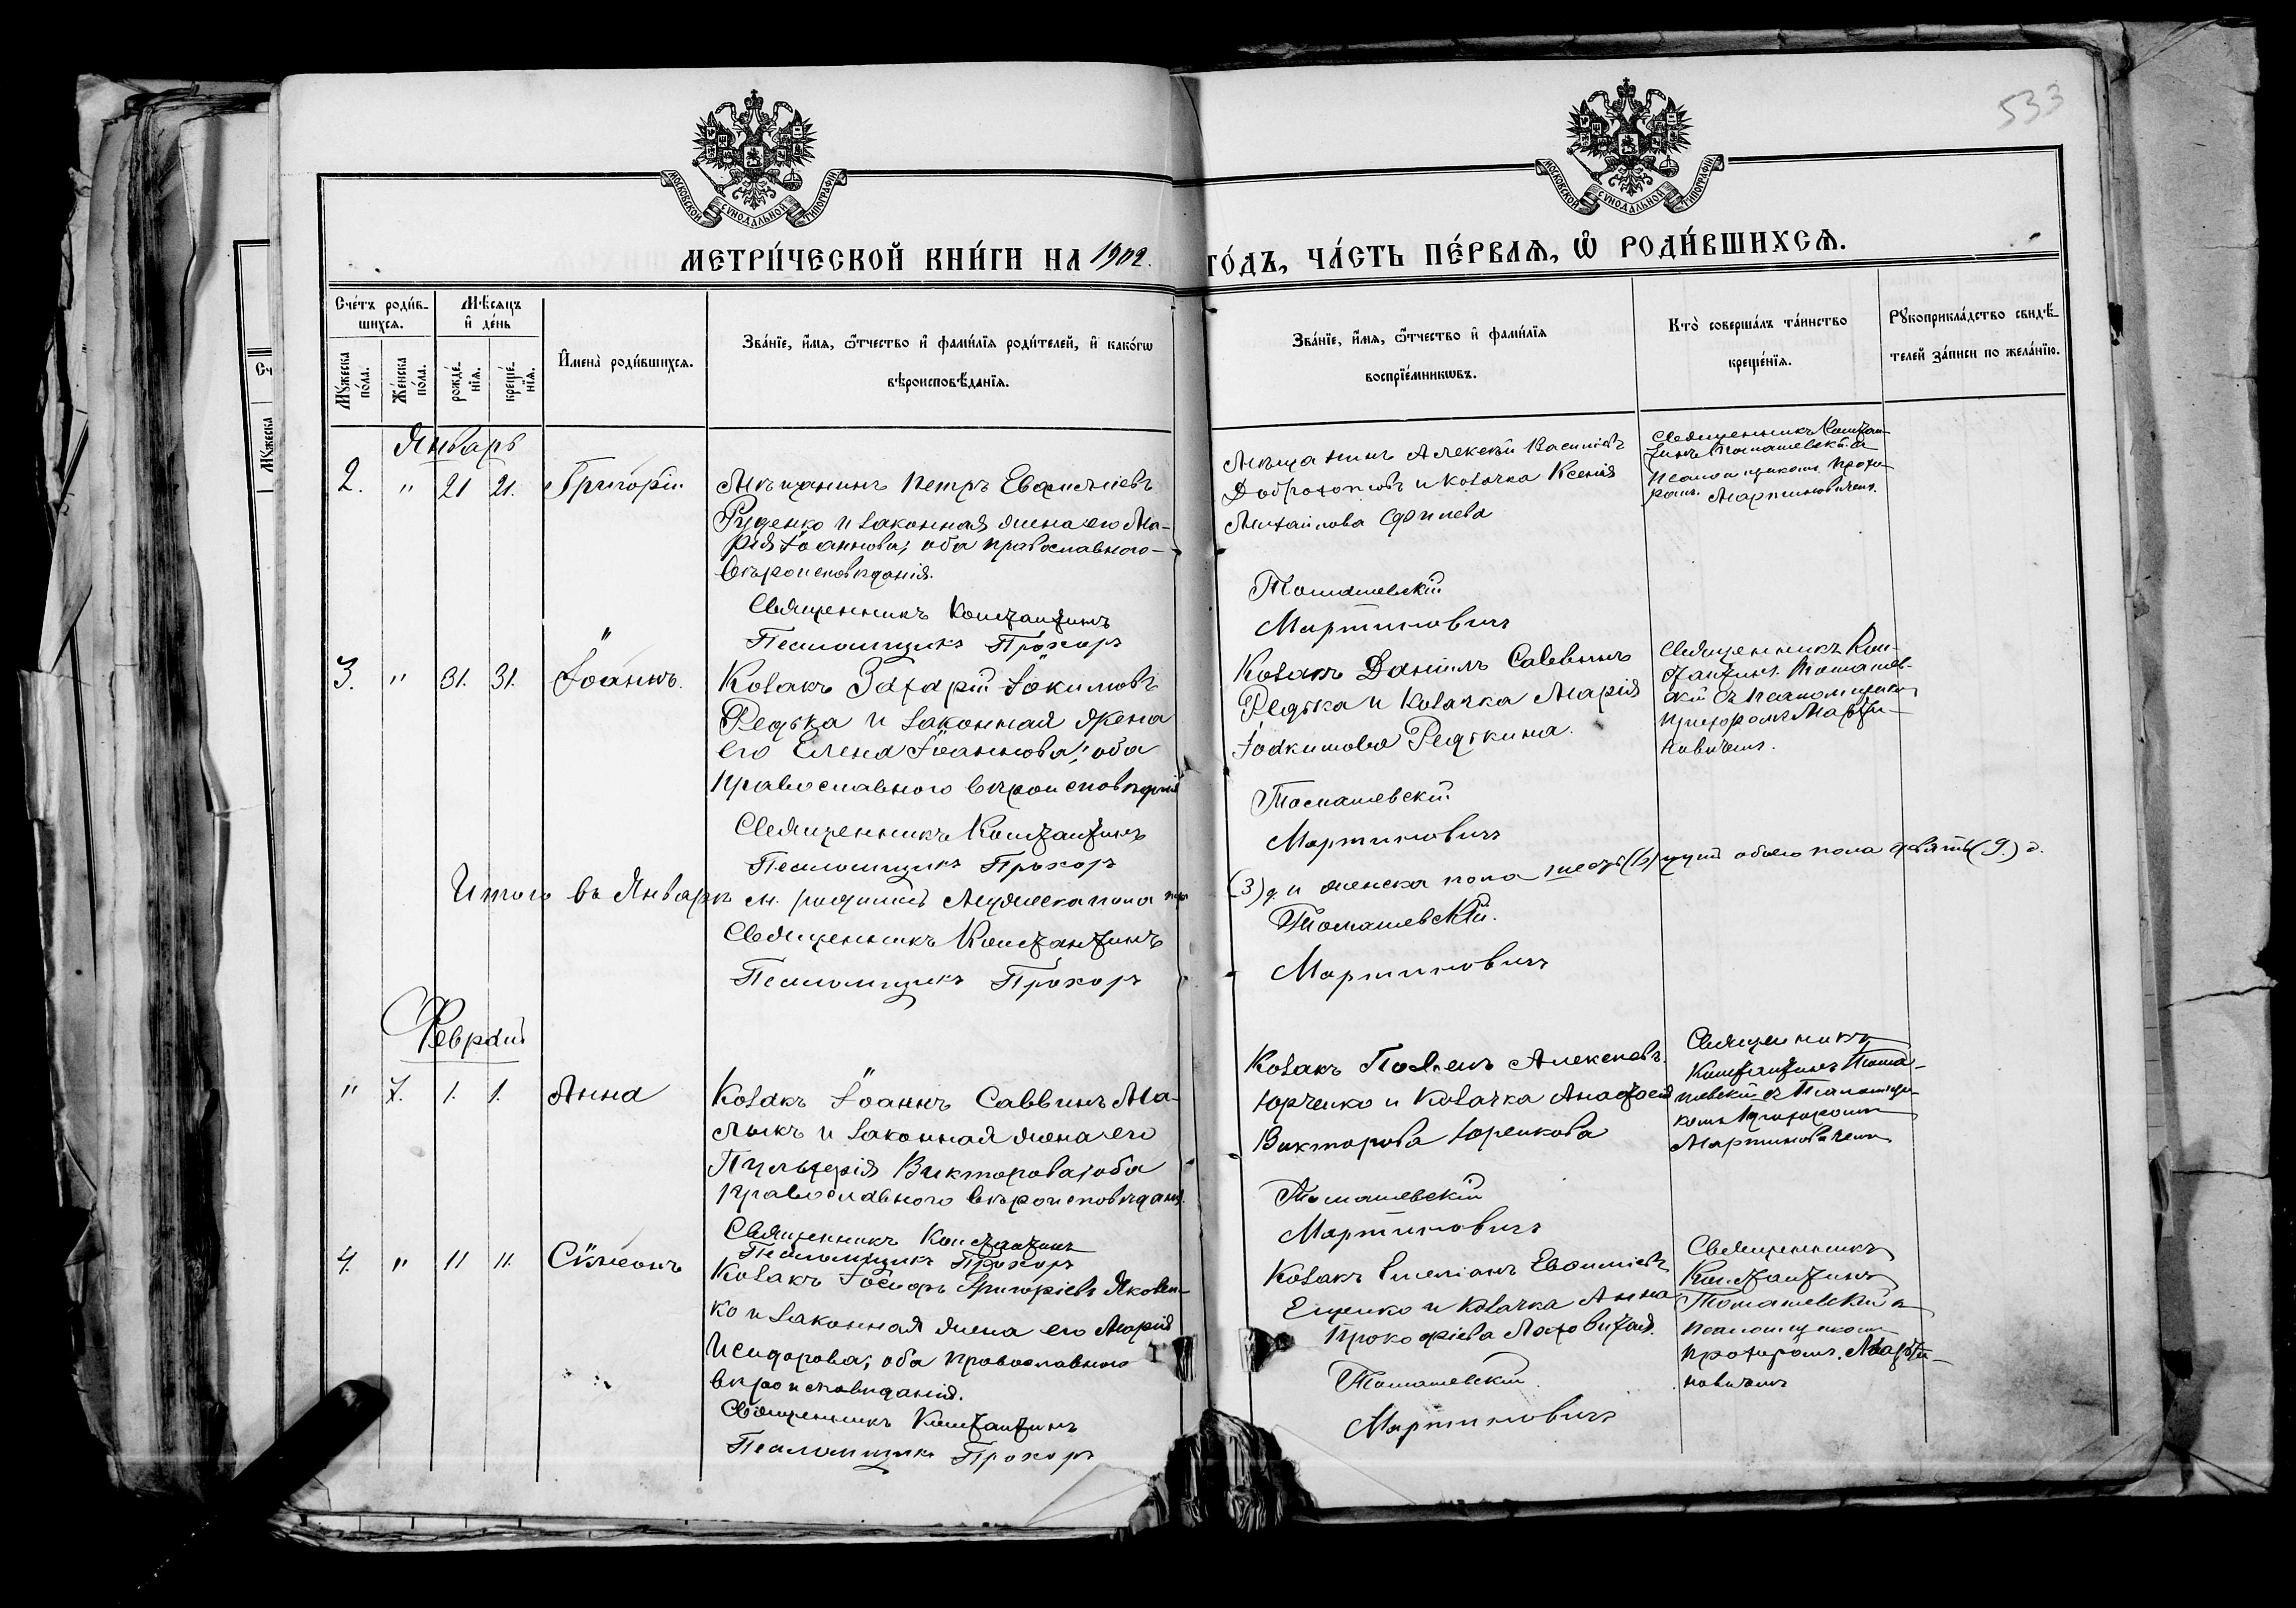 533
МОСКОВСКОЙ СѴНОДАЛЬНОЙ ТИПОГРАФІИ
МОСКОВСКОЙ СѴНОДАЛЬНОЙ ТИПОГРАФІИ
МЕТРИ́ЧЕСКОЙ КНИ́ГИ НА 1902.
ГО́ДЪ, ЧА́СТЬ ПЕ́РВАѦ, Ѡ҆ РОДИ́ВШИХСѦ.
Сче́тъ роди́в-
шихсѧ.
Мѣ́сѧцъ
и҆ де́нь
Мꙋ́жеска
по́ла.
Же́нска
по́ла.
рожде́-
нїѧ.
креще́-
нїѧ.
И҆мена̀ роди́вшихсѧ.
Зва́нїе, и҆́мѧ, ѻ҆́тчество и҆ фами́лїѧ роди́телей, и҆ како́гѡ
вѣроисповѣ́данїѧ.
Зва́нїе, и҆́мѧ, ѻ҆́тчество и҆ фами́лїѧ
воспрїе́мникѡвъ.
Кто̀ соверша́лъ та́инство
креще́нїѧ.
Рꙋкоприкла́дство свидѣ́-
телей за́писи по жела́нїю.
Январь
2. " 21 21. Григорій
Мѣщанинъ Петръ Евфиміевъ
Руденко и законная жена его Ма-
рія Іоаннова; оба православнаго
вѣроисповѣданія.
Священникъ Константинъ
Псаломщикъ Прохоръ
Мѣщанинъ Алексѣй Василіевъ
и козачка Ксенія
Михайлова
Томашевскій
Мартиновичъ
Священникъ Констан-
тинъ Томашевскій съ
Псаломщикомъ Прохо-
ромъ Мартиновичемъ.
"
3. " 31. 31. Іоаннъ.
Козакъ Захарій Іоакимовъ
Редька и законная жена
его Елена Іоаннова; оба
православного вѣроисповѣданія
Священникъ Константинъ
Псаломщикъ Прохоръ
Козакъ Даніилъ Саввинъ
Редька и козачка Марія
Іоакимова Редькина.
Томашевскій
Мартиновичъ
Священникъ Кон-
стантинъ Томашев-
скій съ Псаломщикомъ
Прохоромъ Марти-
новичемъ.
Итого въ Январѣ м. родилось Мужеска пола три
(3) д. и женска пола шесть (6) душъ обоего пола девять (9.) д.
Священникъ Константинъ
Псаломщикъ Прохоръ
Томашевскій.
Мартиновичъ
Февраль
" 7. 1. 1. Анна
Козакъ Іоаннъ Саввинъ Ма-
лыкъ и законная жена его
Пульхерія Викторова; оба
православного вѣроисповѣданія.
Священникъ Константинъ
Псаломщикъ Прохоръ
Козакъ Алексѣевъ
Юрченко и Козачка Анастасія
Викторова
Томашевскій
Мартиновичъ
Священникъ
Константинъ Тома-
шевскій съ Псаломщи-
комъ Прохоромъ
Мартиновичемъ
4. " 11 11. Симеонъ
Козакъ Іосифъ Григоріевъ Яковен-
ко и законная жена его Марія
Исидорова; оба православного
вѣроисповѣданія.
Священникъ Константинъ
Псаломщикъ Прохоръ
Козакъ Емеліанъ Евфиміевъ
Ещенко и козачка Анна
Прокофіева
Томашевскій
Мартиновичъ
Священникъ
Константинъ
Томашевскій съ
Псаломщикомъ
Прохоромъ Марти-
новичемъ